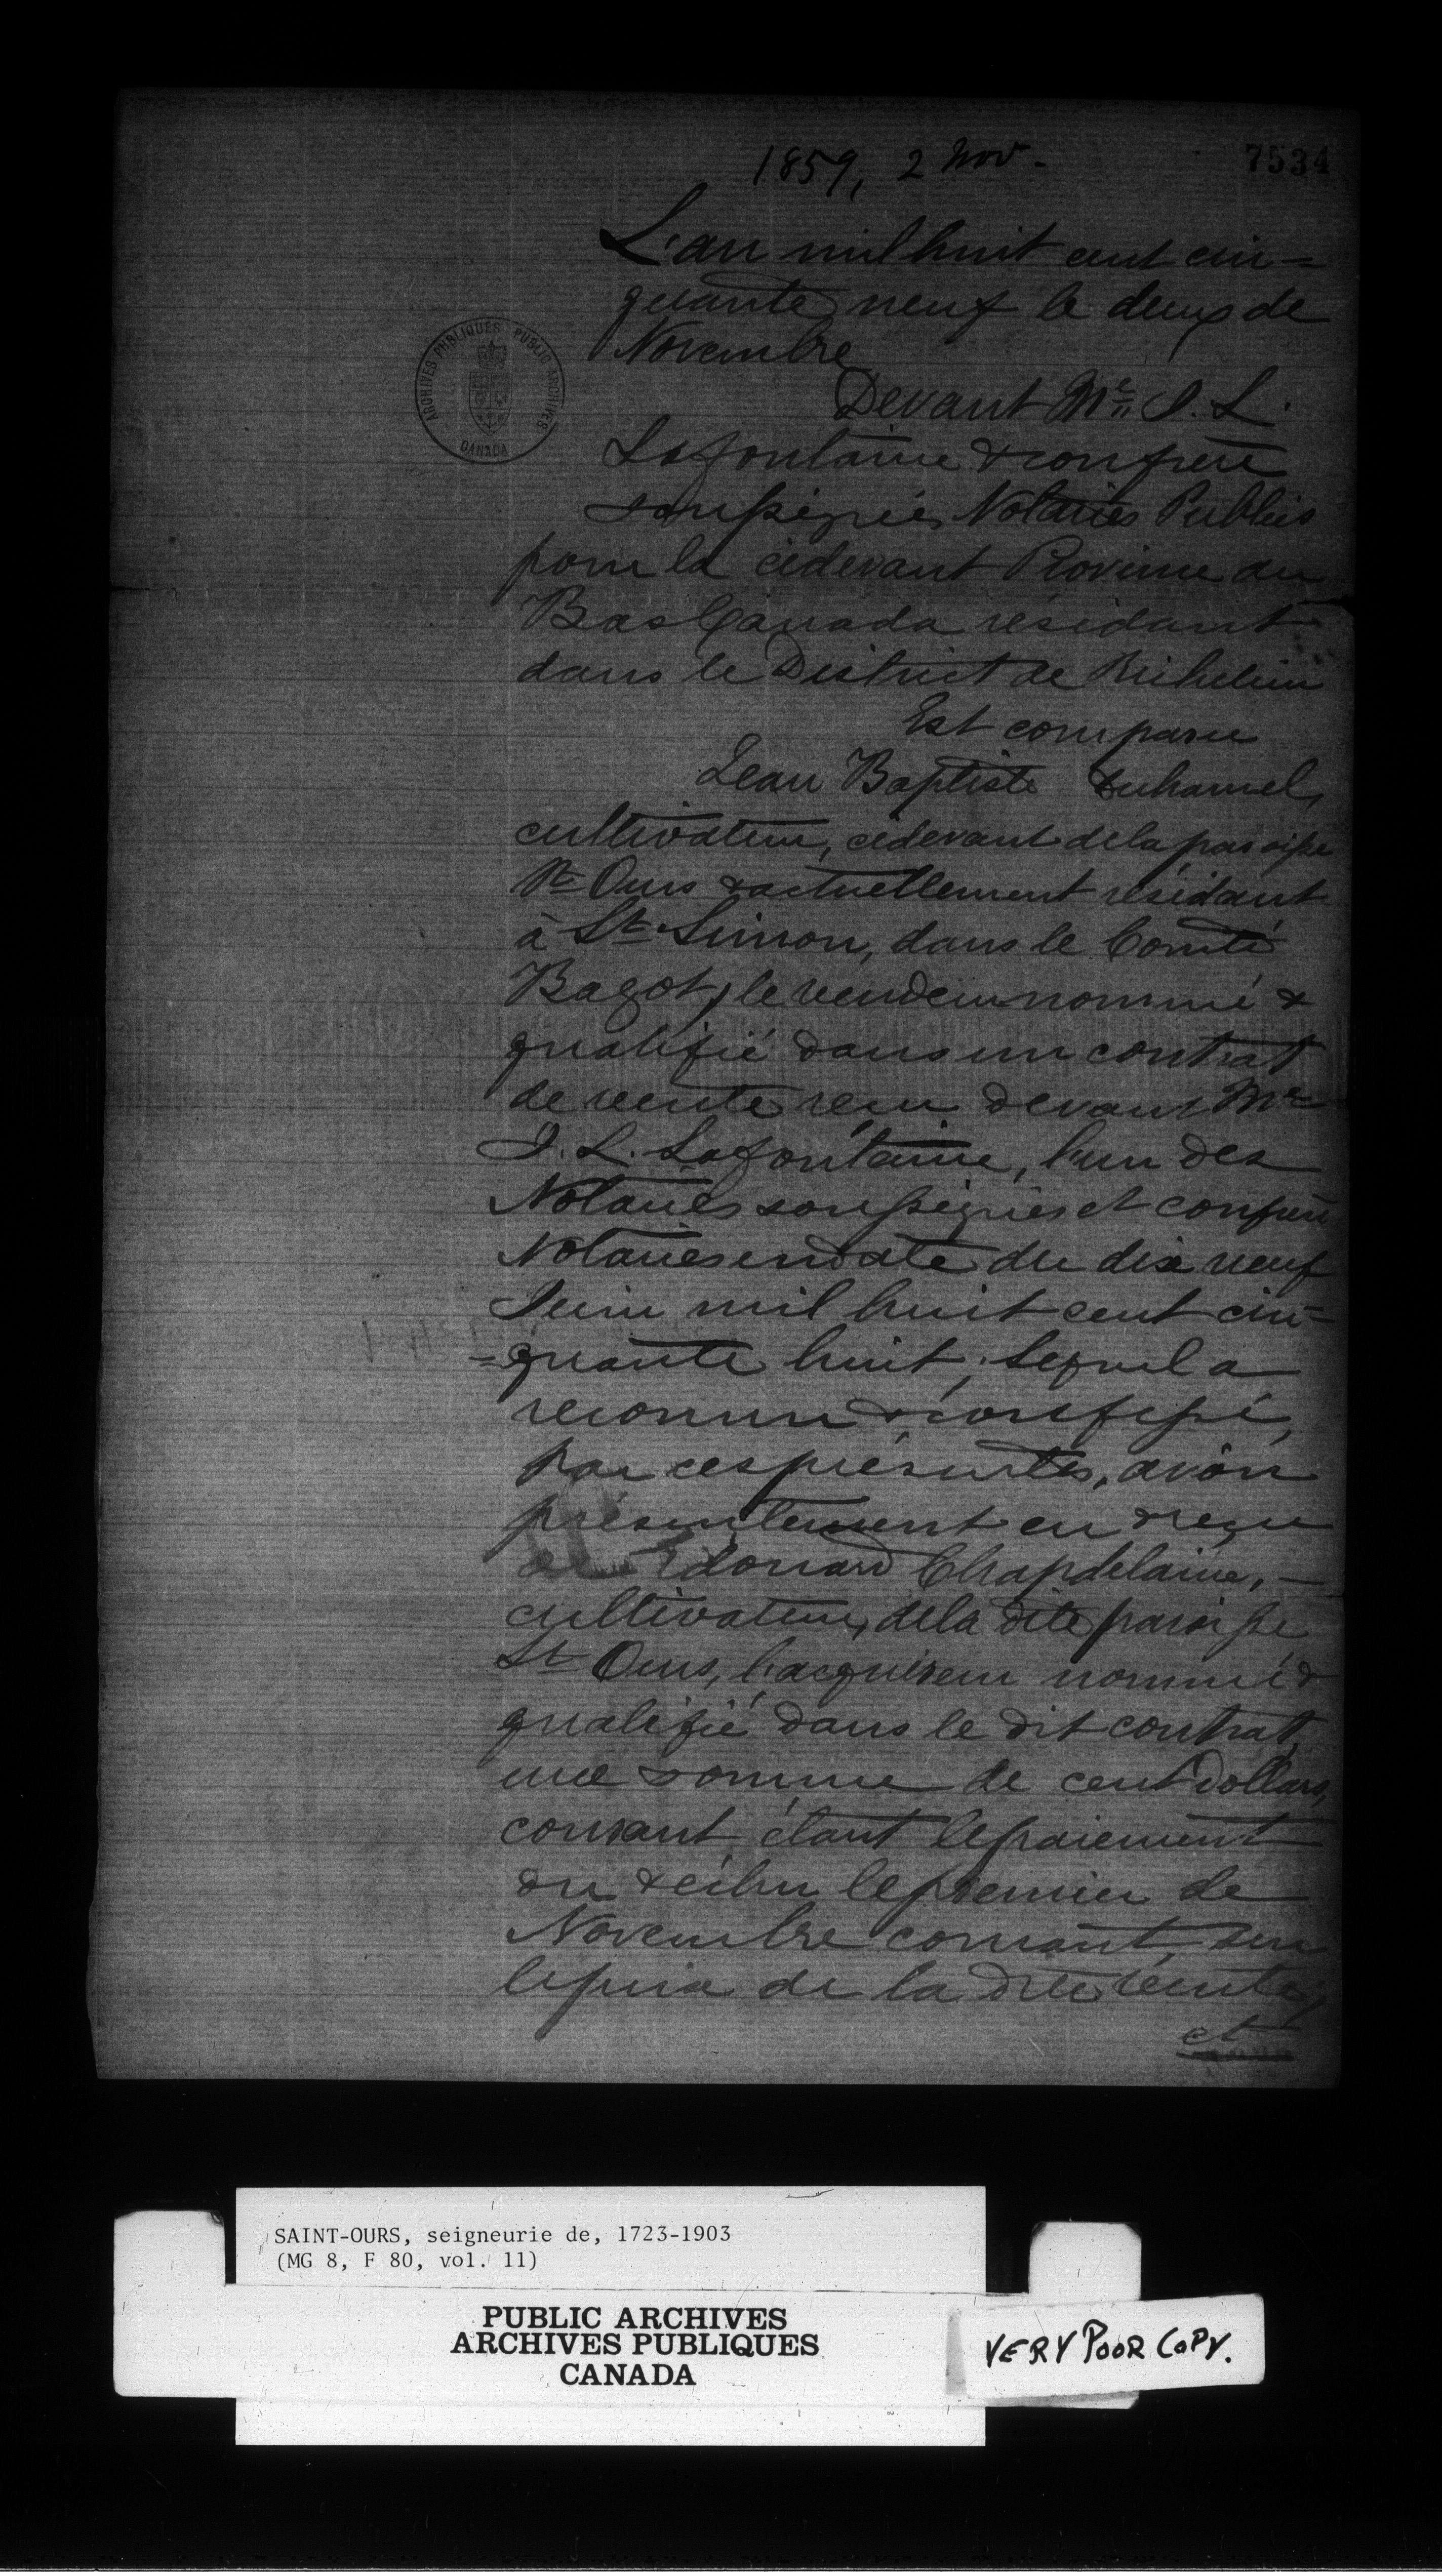 1859, 2 Nov.
7534
L'an mil huit cent cin=
quante neuf le deux de
Novembre
Devant Mtre J. L.
Lafontaine & confrère
soussignés Notaires Publics
pour la cidevant Province du
Bas Canada résidant
dans le District de Richelieu
Est comparu
Jean Baptiste Duhamel,
cultivateur, cidevant de la paroisse
St Ours & actuellement résidant
à St Simon, dans le Comté
Bagot, le vendeur nommé &
qualifié dans un contrat
de vente reçu devant Mtre
J. L. Lafontaine, l'un des
Notaires soussignés et confrère
Notaires en date du dix neuf
Juin mil huit cent cin=
=quante huit; lequel a
reconnu & confessé,
par ces présentes, avoir
présentement eu & reçu
de Edouard Chapdelaine, —
cultivateur, de la dite paroisse
St Ours, l'acquéreur nommé &
qualifié dans le dit contrat,
une somme de cent dollars,
courant, étant le paiement
du & échu le premier de
Novembre courant, sur
le prix de la dite vente;
et
ARCHIVES PUBLIQUES PUBLIC ARCHIVES
CANADA
SAINT-OURS, seigneurie de, 1723-1903
(MG 8, F 80, vol. 11)
PUBLIC ARCHIVES
ARCHIVES PUBLIQUES
CANADA
VERY POOR COPY.